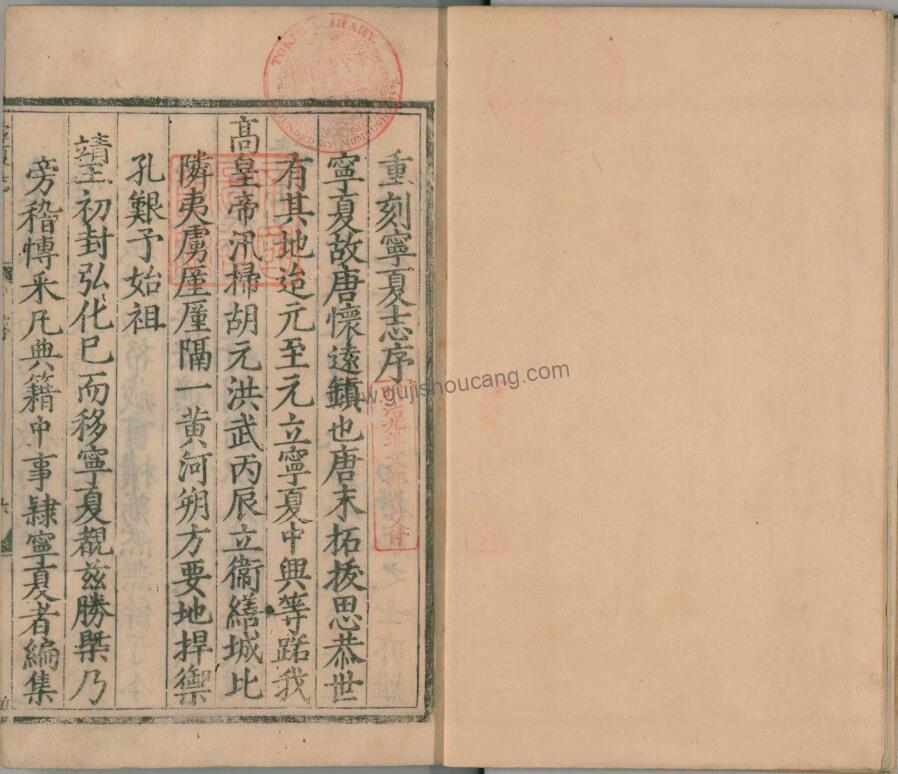 重刻寧夏志序
寧夏故唐懷遠鎮也唐末拓拔思恭世
有其地迨元至元立寧夏中興等路我
高皇帝汛掃胡元洪武丙辰立衞繕城比
隣夷虜厪厪隔一黃河朔方要地捍禦
孔艱予始祖
靖王初封弘化已而移寧夏覩兹勝槩乃
旁稽博采凡典籍中事隷寧夏者編集
www.gujishoucang.com
明治九年文部省交付